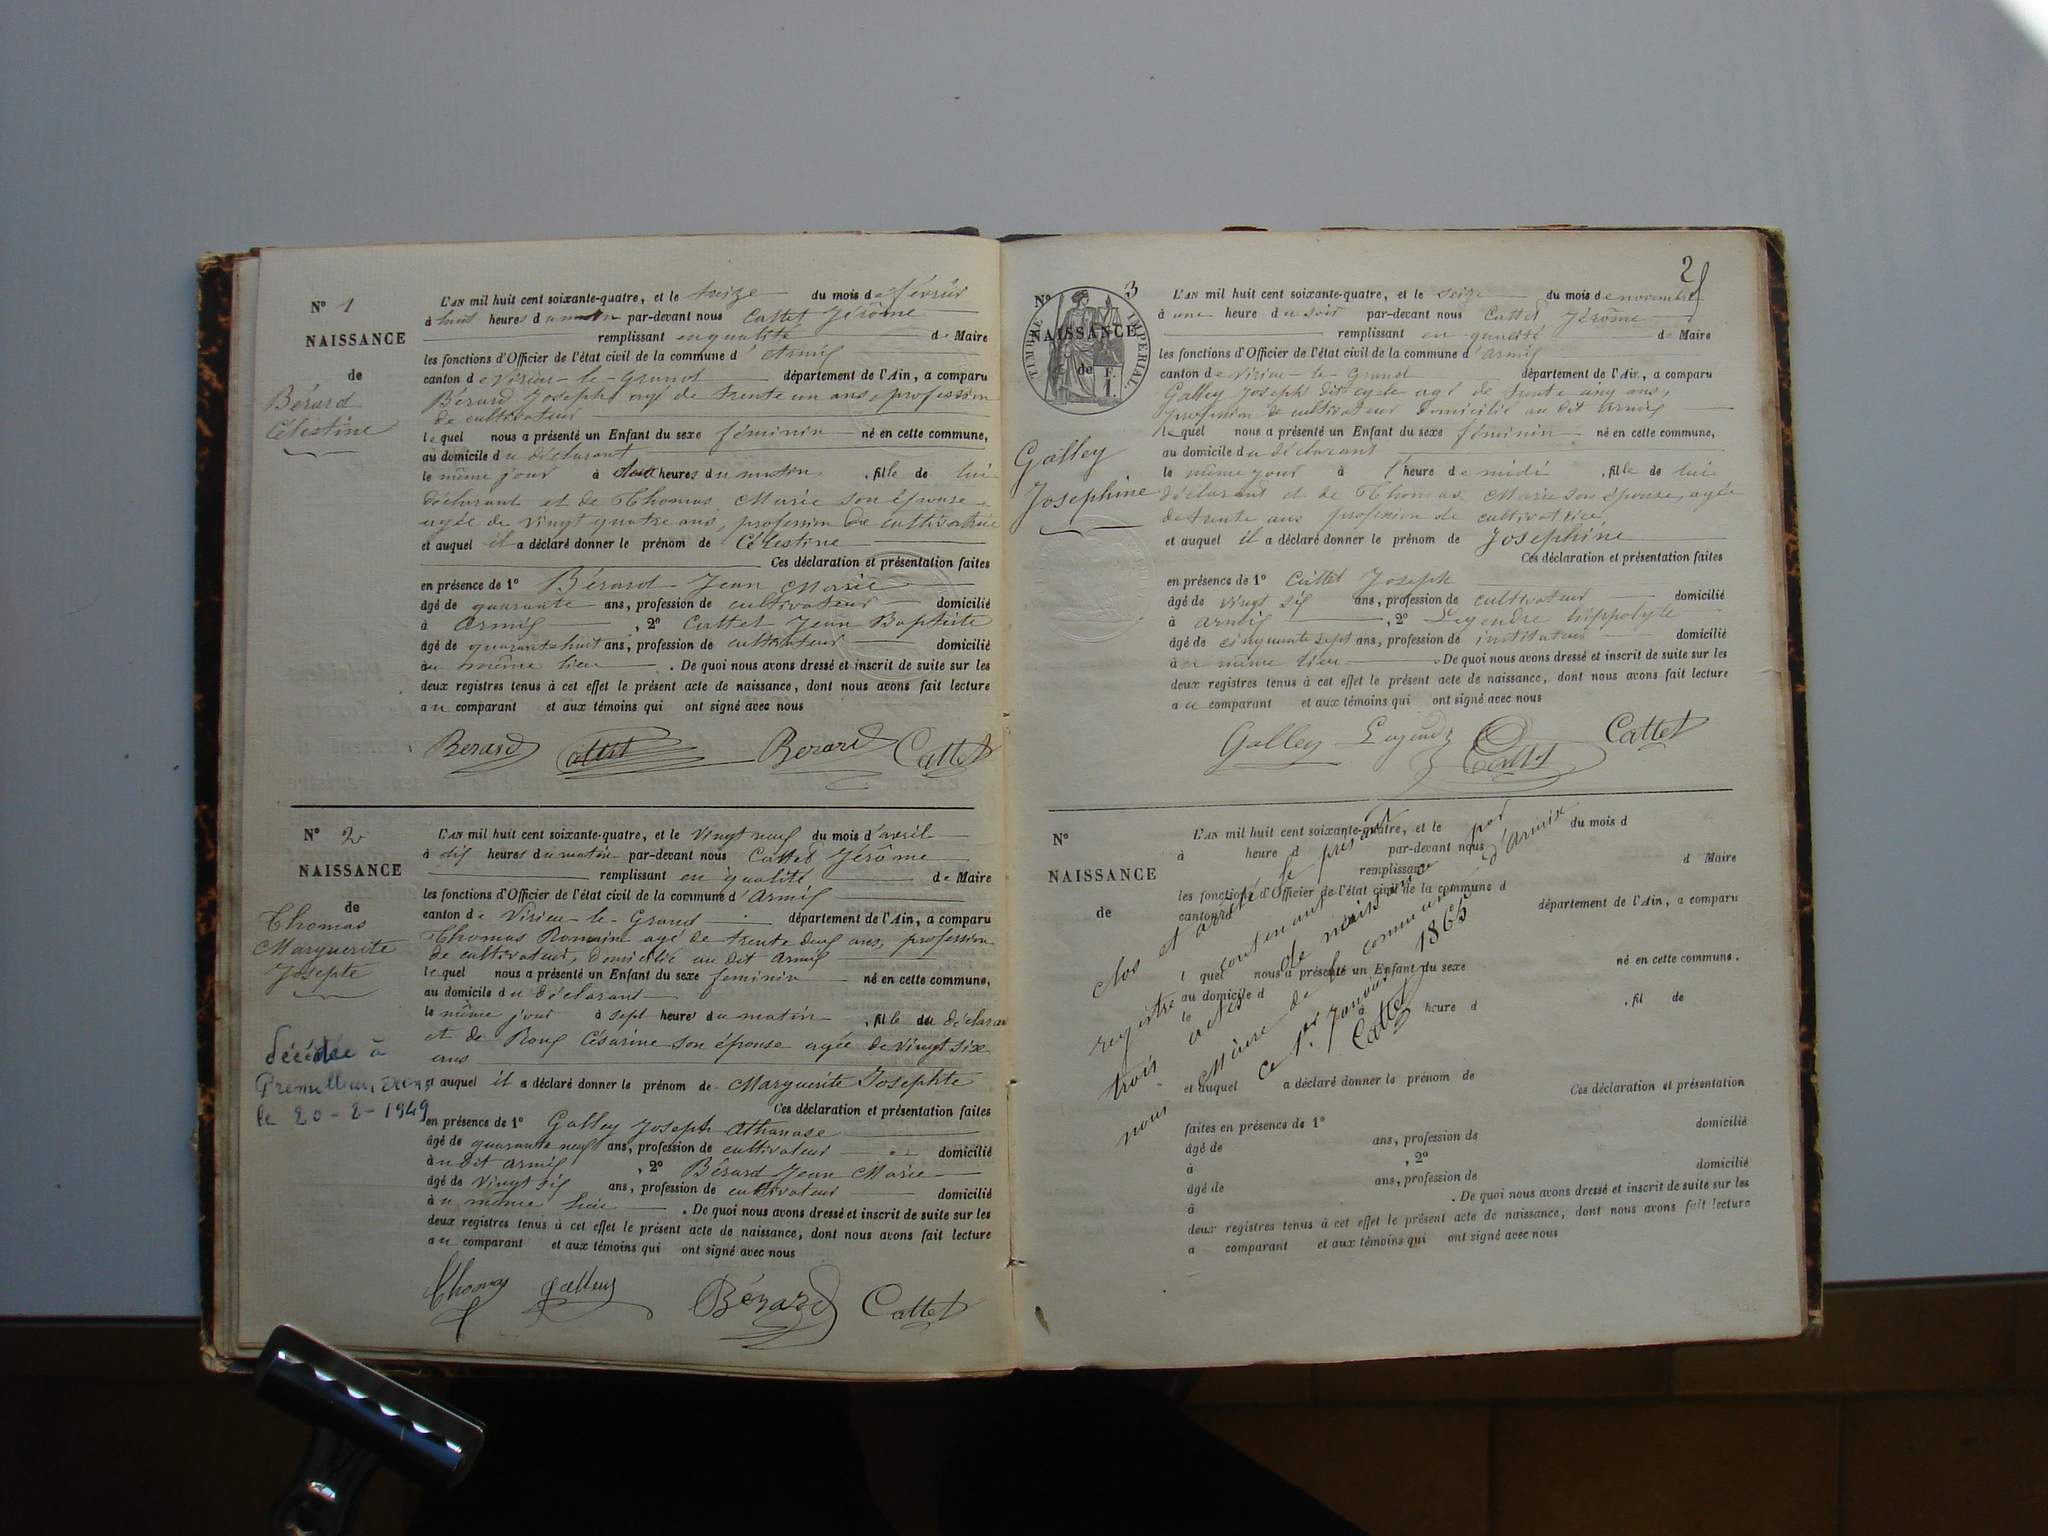 N° 1
NAISSANCE
de
Bérard
Célestine
L'AN mil huit cent soixante-quatre, et le treize du mois de février
à huit heures du matin par-devant nous Cattet Jérôme
remplissant en qualité de Maire
les fonctions d'Officier de l'état civil de la commune d'Armix
canton de Virieu-le-Grand département de l'Ain, a comparu
Bérard Joseph, agé de trente un ans, profession
de cultivateur
lequel nous a présenté un Enfant du sexe féminin né en cette commune,
au domicile du déclarant
le même jour à heures du matin, fille de lui
déclarant et de Thomas Marie son épouse
agée de vingt quatre ans, profession de cultivatrice
et auquel il a déclaré donner le prénom de Célestine
Ces déclaration et présentation faites
en présence de 1° Bérard Jean Marie
âgé de quarante ans, profession de cultivateur domicilié
à Armix, 2° Cattet Jean Baptiste
âgé de quarante huit ans, profession de cultivateur domicilié
au même lieu. De quoi nous avons dressé et inscrit de suite sur les
deux registres tenus à cet effet le présent acte de naissance, dont nous avons fait lecture
au comparant et aux témoins qui ont signé avec nous
Berard Cattet Berard Cattet
N° 2
NAISSANCE
de
Thomas
Marguerite
Josepte
décédée à
le 20-2-1949
L'AN mil huit cent soixante-quatre, et le vingt neuf du mois d'avril
à dix heures du matin par-devant nous Cattet Jérôme
remplissant en qualité de Maire
les fonctions d'Officier de l'état civil de la commune d'Armix
canton de Virieu-le-Grand département de l'Ain, a comparu
Thomas Romain agé de trente deux ans, profession
de cultivateur, domicilié au dit Armix
lequel nous a présenté un Enfant du sexe feminin né en cette commune,
au domicile du déclarant
le même jour à sept heures du matin, fille du déclarant
et de Roux Césarine son épouse agée de vingt six
ans
et auquel il a déclaré donner le prénom de Marguerite Josephte
Ces déclaration et présentation faites
en présence de 1° Galley Joseph Athanase
âgé de quarante neuf ans, profession de cultivateur domicilié
au dit Armix, 2° Bérard Jean Marie
âgé de vingt six ans, profession de cultivateur domicilié
au même lieu. De quoi nous avons dressé et inscrit de suite sur les
deux registres tenus à cet effet le présent acte de naissance, dont nous avons fait lecture
au comparant et aux témoins qui ont signé avec nous
Thomas Galley Bérard Cattet
2
N° 3
NAISSANCE
de
TIMBRE IMPERIAL
1 F.
Galley
Josephine
L'AN mil huit cent soixante-quatre, et le seize du mois de novembre
à une heure du soir par-devant nous Cattet Jérôme
remplissant en qualité de Maire
les fonctions d'Officier de l'état civil de la commune d'Armix
canton de Virieu-le-Grand département de l'Ain, a comparu
Galley Joseph dit agé de trente cinq ans,
profession de cultivateur domicilié au dit Armix
lequel nous a présenté un Enfant du sexe féminin né en cette commune,
au domicile du déclarant
le même jour à l'heure de midi, fille de lui
déclarant et de Thomas Marie son épouse, agée
de trente ans profession de cultivatrice
et auquel il a déclaré donner le prénom de Joséphine
Ces déclaration et présentation faites
en présence de 1° Cattet Joseph
âgé de vingt six ans, profession de cultivateur domicilié
à Armix, 2° Legendre hippolyte
âgé de cinquante sept ans, profession de instituteur domicilié
au même lieu. De quoi nous avons dressé et inscrit de suite sur les
deux registres tenus à cet effet le présent acte de naissance, dont nous avons fait lecture
au comparant et aux témoins qui ont signé avec nous
Galley Legendre Cattet Cattet
N°
NAISSANCE
de
L'AN mil huit cent soixante-quatre, et le du mois d
à heure d par-devant nous
remplissant d Maire
les fonctions d'Officier de l'état civil de la commune d
canton d département de l'Ain, a comparu
l quel nous a présenté un Enfant du sexe né en cette commune,
au domicile d
le à heure d, fil de
et auquel a déclaré donner le prénom de
Ces déclaration et présentation
faites en présence de 1°
âgé de ans, profession de domicilié
à, 2°
âgé de ans, profession de domicilié
à. De quoi nous avons dressé et inscrit de suite sur les
deux registres tenus à cet effet le présent acte de naissance, dont nous avons fait lecture
a comparant et aux témoins qui ont signé avec nous
clos et arrêté le présent
registre contenant
trois actes de naissance par
nous Maire de la commune d'Armix
ce 1er janvier 1865
Cattet